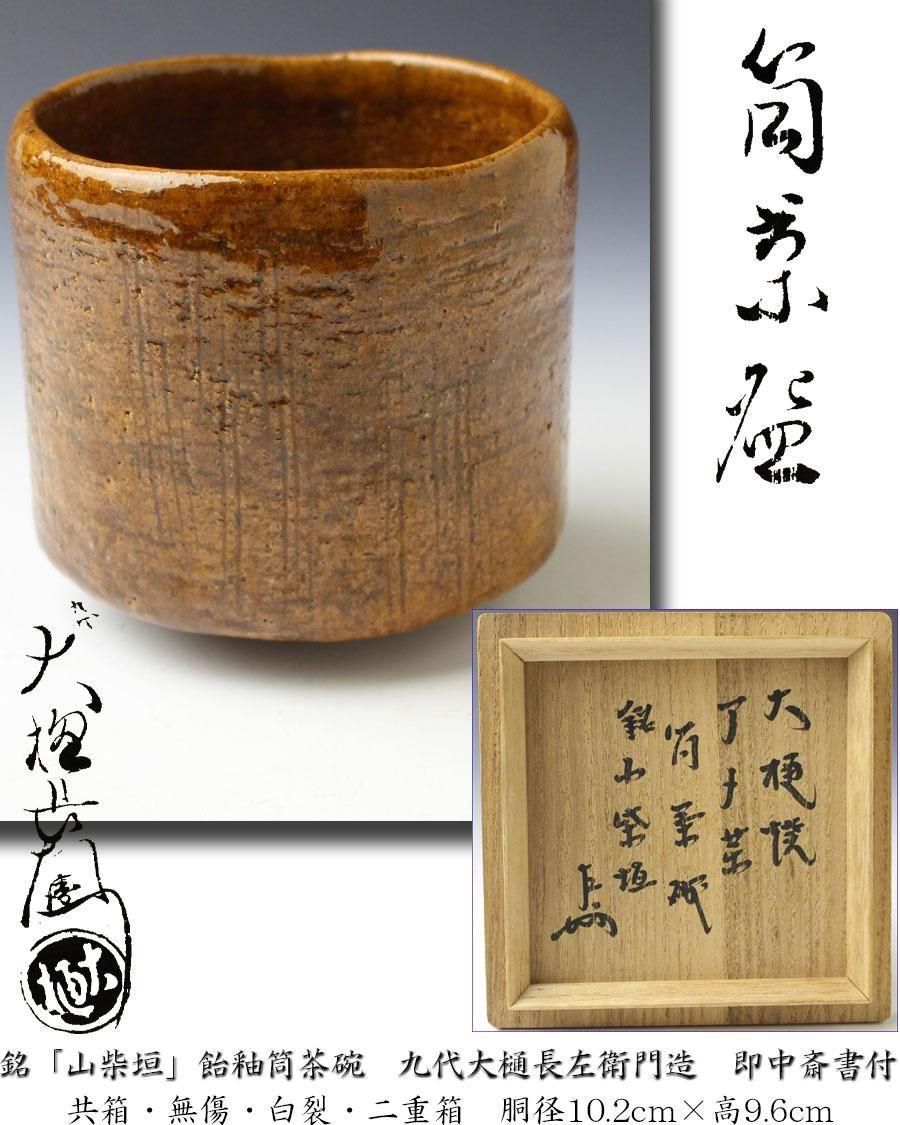 筒茶碗
大樋長左衛門
大樋
アメ茶
筒茶碗
銘 山柴垣
銘「山柴垣」飴釉筒茶碗　九代大樋長左衛門造　即中斎書付
共箱・無傷・白裂・二重箱　胴径10.2cm×高9.6cm